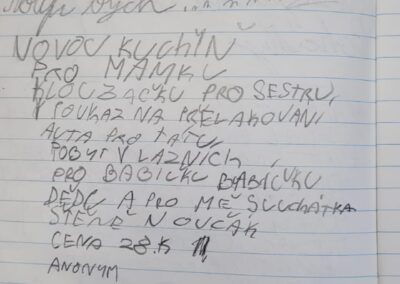 NOVOU KUCHYŇ
PRO MÁMKU
KLOUZAČKU PRO SESTRU,
POUKAZ NA PŘELAKOVÁNÍ
AUTA PRO TÁTU,
POBYT V LÁZNÍCH,
PRO BABIČKU BABIČKU
DĚDU A PRO MĚ SLUCHÁTKA
ŠTĚNĚ NOVČÁK
CENA 28.K
ANONYM